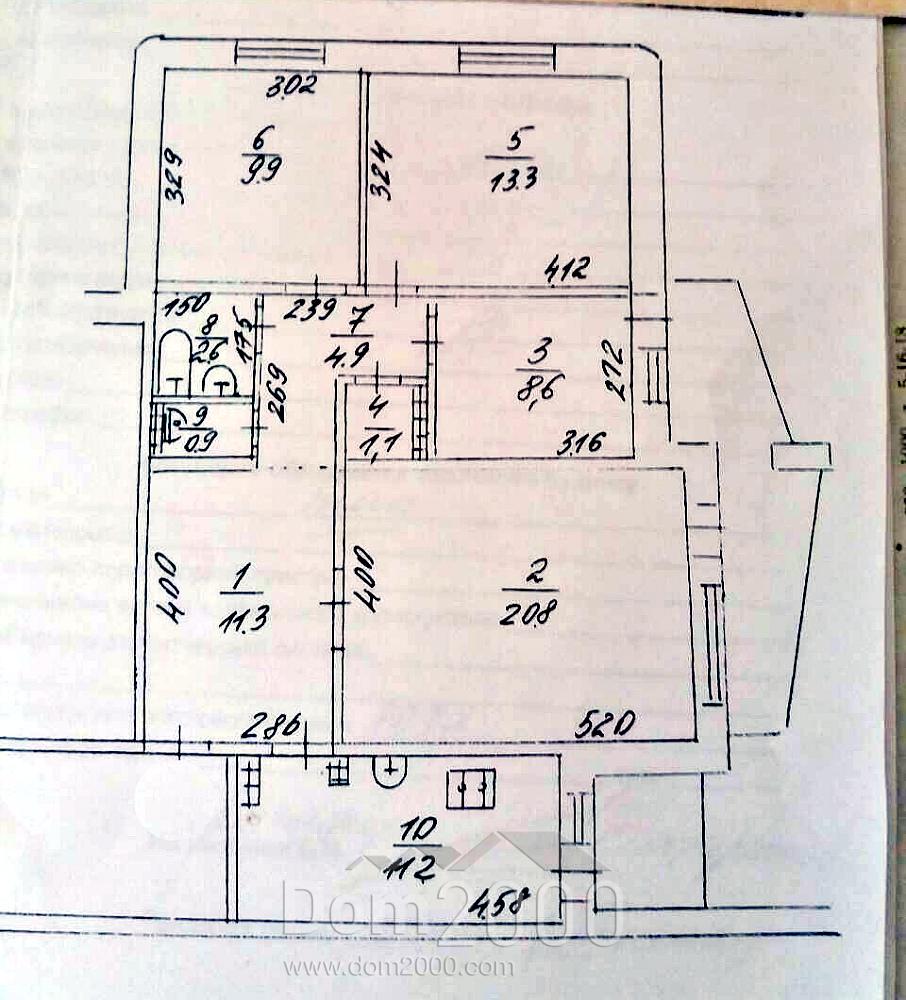 3.02
6
9.9
329
324
5
13.3
4.12
150
8
2.6
175
239
7
4.9
269
3
8,6
272
316
4
1,1
9
0.9
400
1
11.3
286
400
2
20.8
520
10
11.2
4.58
Dom2000
www.dom2000.com